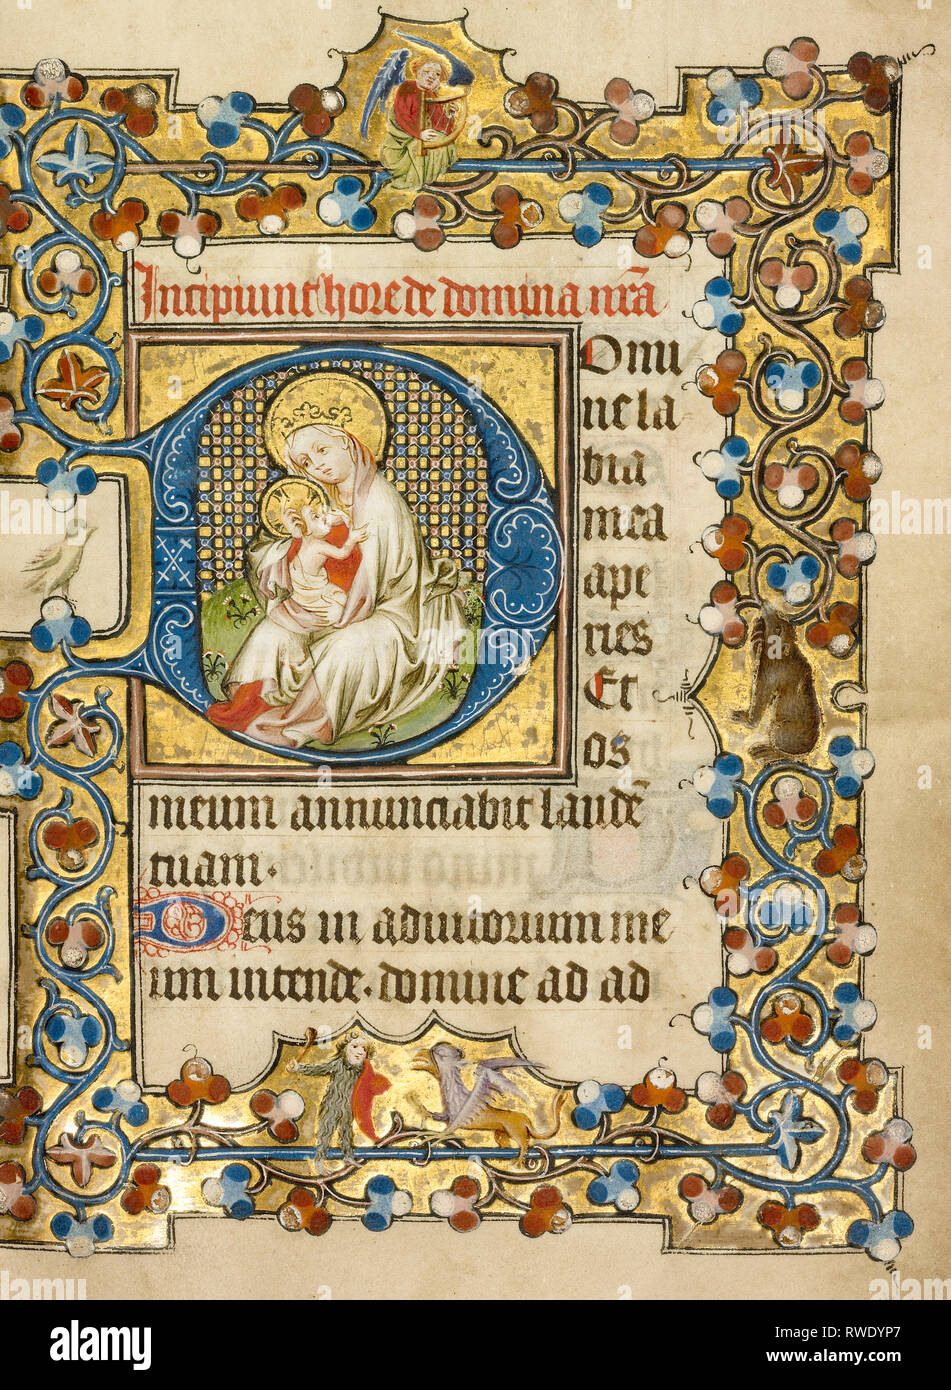 Incipiunt hore de domina nr̄a
Domi
ne la
bia
mea
ape
ries
Et
os
meum annunciabit laudē
tuam.
Deus in adiutorium me
um intende. domine ad ad
alamy
Image ID: RWDYP7
www.alamy.com